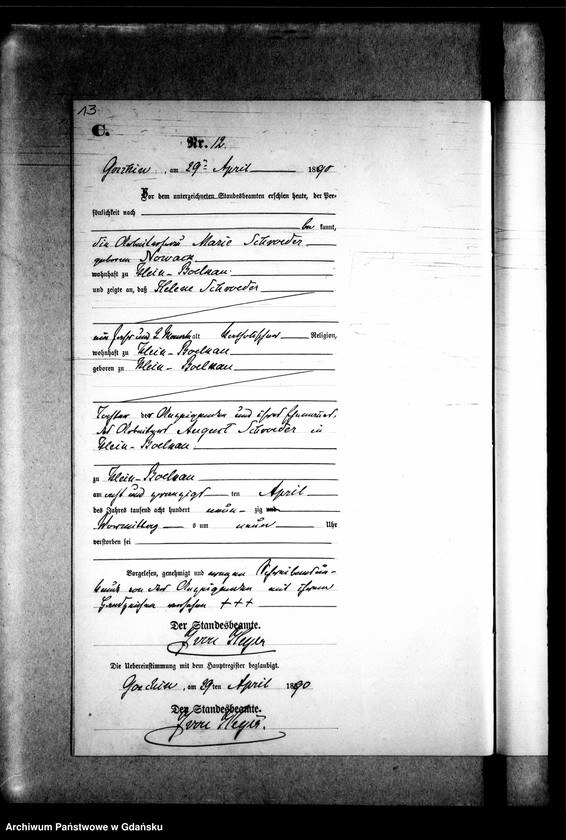 13
C.
Nr. 12.
am 29ten April 1890
Vor dem unterzeichneten Standesbeamten erschien heute, der Per-
sönlichkeit nach
be kannt,
die Arbeiterfrau Marie Schroeder
geborene Nowack
wohnhaft zu Klein-Boelkau
und zeigte an, daß Helene Schroeder
ein Jahr und 2 Monate alt katholischer Religion,
wohnhaft zu Klein-Boelkau
geboren zu Klein-Boelkau
Tochter der Anzeigenden und ihres Ehemannes
des Arbeiters August Schroeder in
Klein-Boelkau
zu Klein-Boelkau
am acht und zwanzigsten April
des Jahres tausend acht hundert neun- zig und
Vormittags um neun Uhr
verstorben sei
Vorgelesen, genehmigt und wegen Schreibensun-
kunde von der Anzeigenden mit ihrem
Handzeichen versehen +++
Der Standesbeamte.
von Heyer
Die Uebereinstimmung mit dem Hauptregister beglaubigt.
am 29ten April 1890
Der Standesbeamte.
von Heyer.
Archiwum Państwowe w Gdańsku